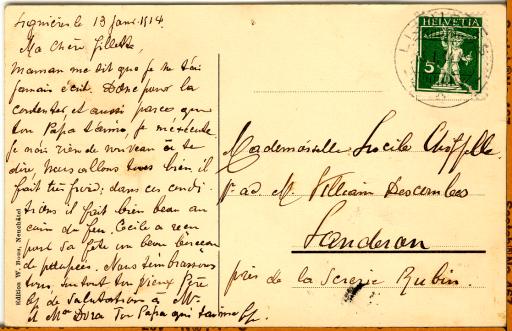 Lignières le 13 Janv. 1914.
Ma Chère fillette,
Maman me dit que je ne t'ai
jamais écrit. Donc pour la
contenter et aussi parce que
ton Papa t'aime, je m'exécute
je n'ai rien de nouveau à te
dire, nous allons tous bien, il
fait très froid; dans ces condi
tions il fait bien beau au
coin du feu. Cécile a reçu
pour sa fête un beau berceau
de poupées. Nous t'embrassons
tous, surtout ton vieux Père
de salutations à Mr.
et Mme Dora Ton Papa qui t'aime
Edition W. Bous, Neuchâtel
HELVETIA
5
Mademoiselle Lucile
ad. M. William Descombes
Landeron
près de la Scierie Rubin.